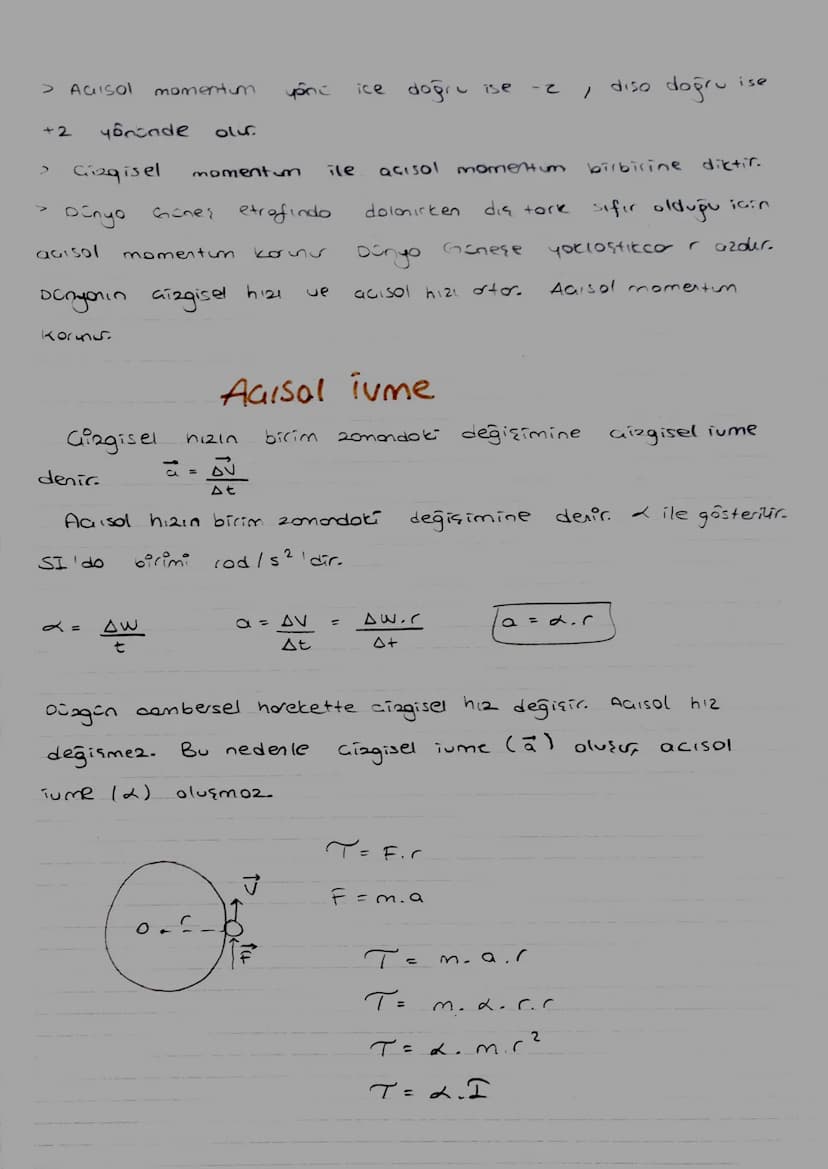 > Açısal momentum yönü içe doğru ise -z, dışa doğru ise
+z yönünde olur.
> Çizgisel momentum ile açısal momentum birbirine diktir.
> Dünya Güneş etrafında dolanırken dış tork sıfır olduğu için
açısal momentum korunur Dünya Güneşe yaklaştıkcar r azdır.
Dünyanın çizgisel hızı ve açısal hızı artar. Açısal momentum
korunur.
Açısal ivme
Çizgisel hızın birim zamandaki değişimine çizgisel ivme
denir. a⃗ = ΔV⃗/Δt
Açısal hızın birim zamandaki değişimine denir. α ile gösterilir.
SI'da birimi rad/s²'dir.
α = Δw/t a = ΔV/Δt = Δw.r/Δt a = α.r
Düzgün çembersel harekette çizgisel hız değişir. Açısal hız
değişmez. Bu nedenle çizgisel ivme (a⃗) oluşur, açısal
ivme (α) oluşmaz.
τ = F.r
V⃗
F = m.a
O r
F⃗
τ = m.a.r
τ = m.α.r.r
τ = α.m.r²
τ = α.I